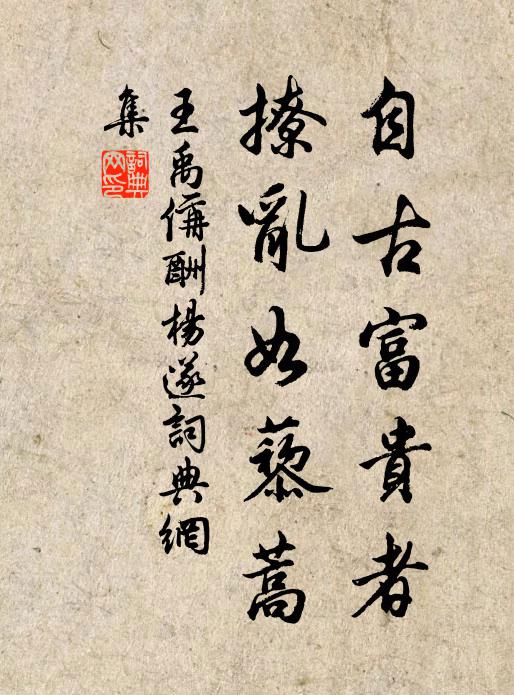 自古富貴者
撩亂如藜蒿
王禹偁酬楊遂詞典網
集
詞典
网印